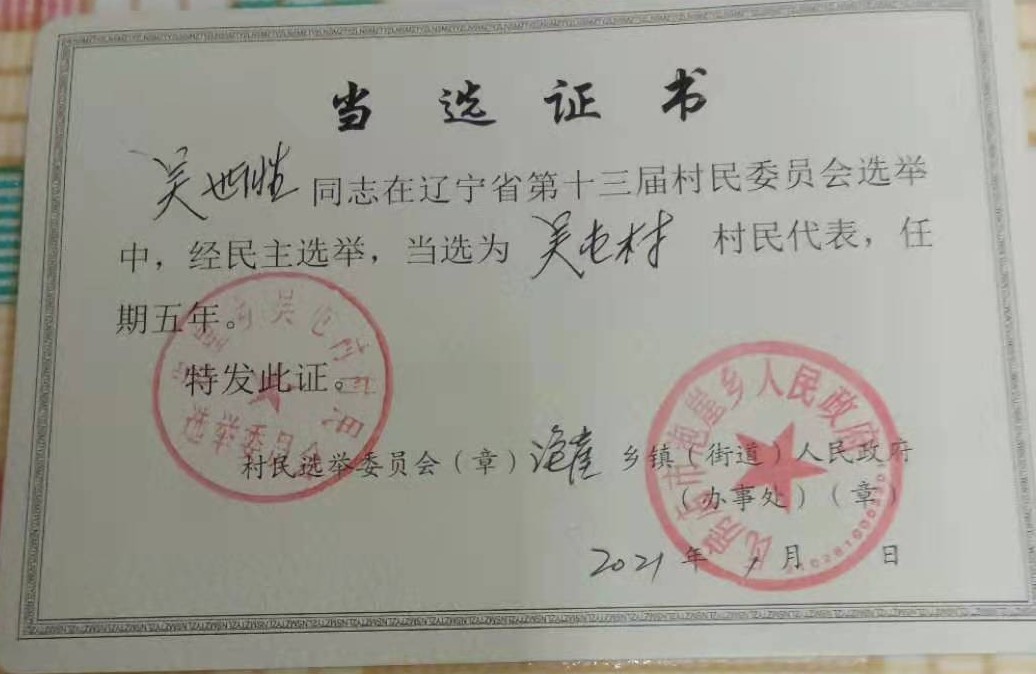 当选证书
吴世胜同志在辽宁省第十三届村民委员会选举
中，经民主选举，当选为 吴屯村 村民代表，任
期五年。
特发此证。
选举委员会
乡人民政府
村民选举委员会（章） 乡镇（街道）人民政府
（办事处）（章）
2021年 1月 日